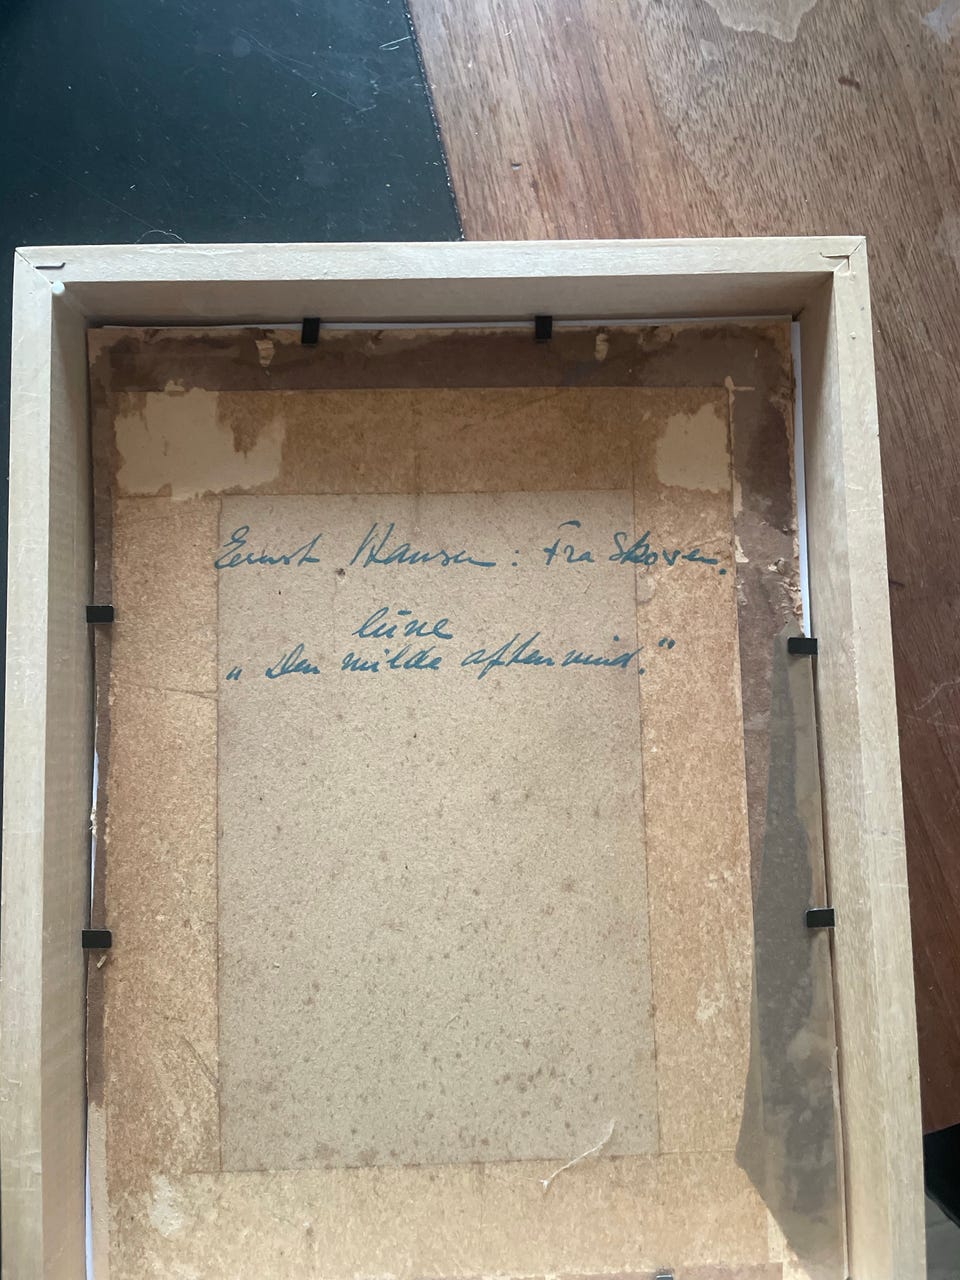 Ernst Hansen: Fra Skoven.
lüne
„Den milde aftenvind."